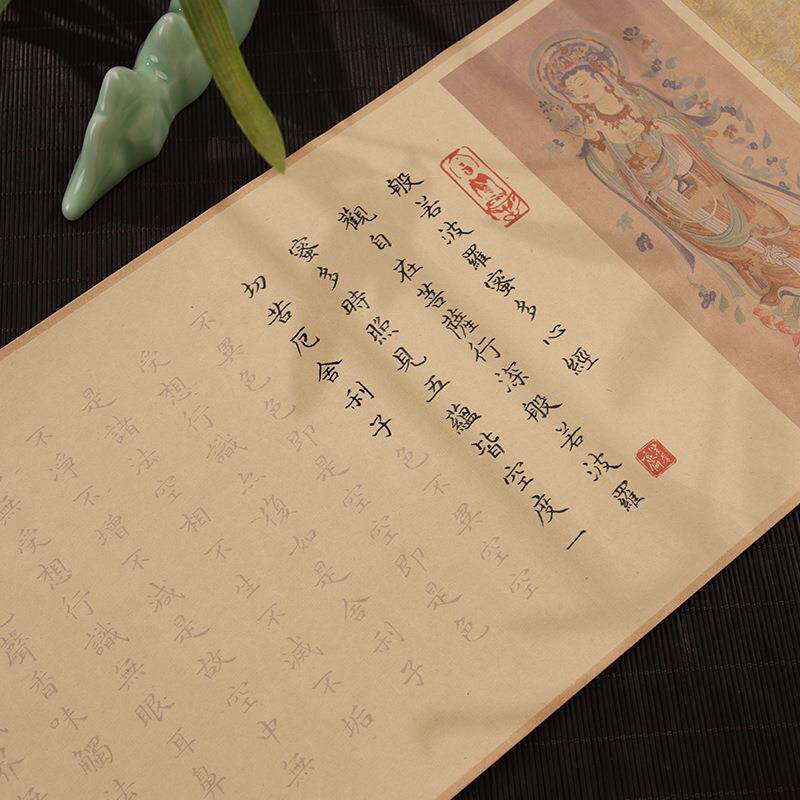 般若波羅蜜多心經
觀自在菩薩行深般若波羅
蜜多時照見五蘊皆空度一
切苦厄舍利子色不異空空
不異色色即是空空即是色
受想行識亦復如是舍利子
是諸法空相不生不滅不垢
不淨不增不減是故空中無
無受想行識無眼耳鼻
色聲香味觸法
界